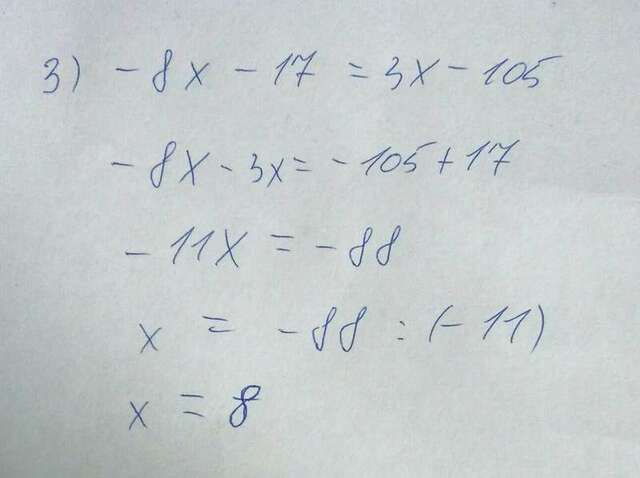 3) -8x - 17 = 3x - 105
-8x - 3x = -105 + 17
-11x = -88
x = -88 : (-11)
x = 8